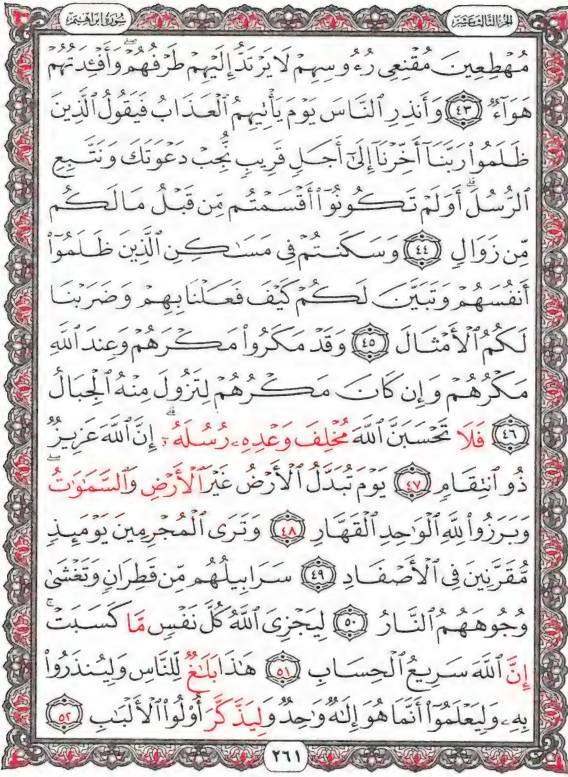 سُورَةُ إِبْرَاهِيمَ
الجُزْءُ الثَّالِثَ عَشَرَ
مُهْطِعِينَ مُقْنِعِى رُءُوسِهِمْ لَا يَرْتَدُّ إِلَيْهِمْ طَرْفُهُمْ ۖ وَأَفْـِٔدَتُهُمْ
هَوَآءٌ ٤٣ وَأَنذِرِ ٱلنَّاسَ يَوْمَ يَأْتِيهِمُ ٱلْعَذَابُ فَيَقُولُ ٱلَّذِينَ
ظَلَمُوا۟ رَبَّنَآ أَخِّرْنَآ إِلَىٰٓ أَجَلٍ قَرِيبٍ نُّجِبْ دَعْوَتَكَ وَنَتَّبِعِ
ٱلرُّسُلَ ۗ أَوَلَمْ تَكُونُوٓا۟ أَقْسَمْتُم مِّن قَبْلُ مَا لَكُم
مِّن زَوَالٍ ٤٤ وَسَكَنتُمْ فِى مَسَـٰكِنِ ٱلَّذِينَ ظَلَمُوٓا۟
أَنفُسَهُمْ وَتَبَيَّنَ لَكُمْ كَيْفَ فَعَلْنَا بِهِمْ وَضَرَبْنَا
لَكُمُ ٱلْأَمْثَالَ ٤٥ وَقَدْ مَكَرُوا۟ مَكْرَهُمْ وَعِندَ ٱللَّهِ
مَكْرُهُمْ وَإِن كَانَ مَكْرُهُمْ لِتَزُولَ مِنْهُ ٱلْجِبَالُ
٤٦ فَلَا تَحْسَبَنَّ ٱللَّهَ مُخْلِفَ وَعْدِهِۦ رُسُلَهُۥٓ ۗ إِنَّ ٱللَّهَ عَزِيزٌ
ذُو ٱنتِقَامٍ ٤٧ يَوْمَ تُبَدَّلُ ٱلْأَرْضُ غَيْرَ ٱلْأَرْضِ وَٱلسَّمَـٰوَٰتُ ۖ
وَبَرَزُوا۟ لِلَّهِ ٱلْوَٰحِدِ ٱلْقَهَّارِ ٤٨ وَتَرَى ٱلْمُجْرِمِينَ يَوْمَئِذٍ
مُّقَرَّنِينَ فِى ٱلْأَصْفَادِ ٤٩ سَرَابِيلُهُم مِّن قَطِرَانٍ وَتَغْشَىٰ
وُجُوهَهُمُ ٱلنَّارُ ٥٠ لِيَجْزِىَ ٱللَّهُ كُلَّ نَفْسٍ مَّا كَسَبَتْ ۚ
إِنَّ ٱللَّهَ سَرِيعُ ٱلْحِسَابِ ٥١ هَـٰذَا بَلَـٰغٌ لِّلنَّاسِ وَلِيُنذَرُوا۟
بِهِۦ وَلِيَعْلَمُوٓا۟ أَنَّمَا هُوَ إِلَـٰهٌ وَٰحِدٌ وَلِيَذَّكَّرَ أُو۟لُوا۟ ٱلْأَلْبَـٰبِ ٥٢
٢٦١